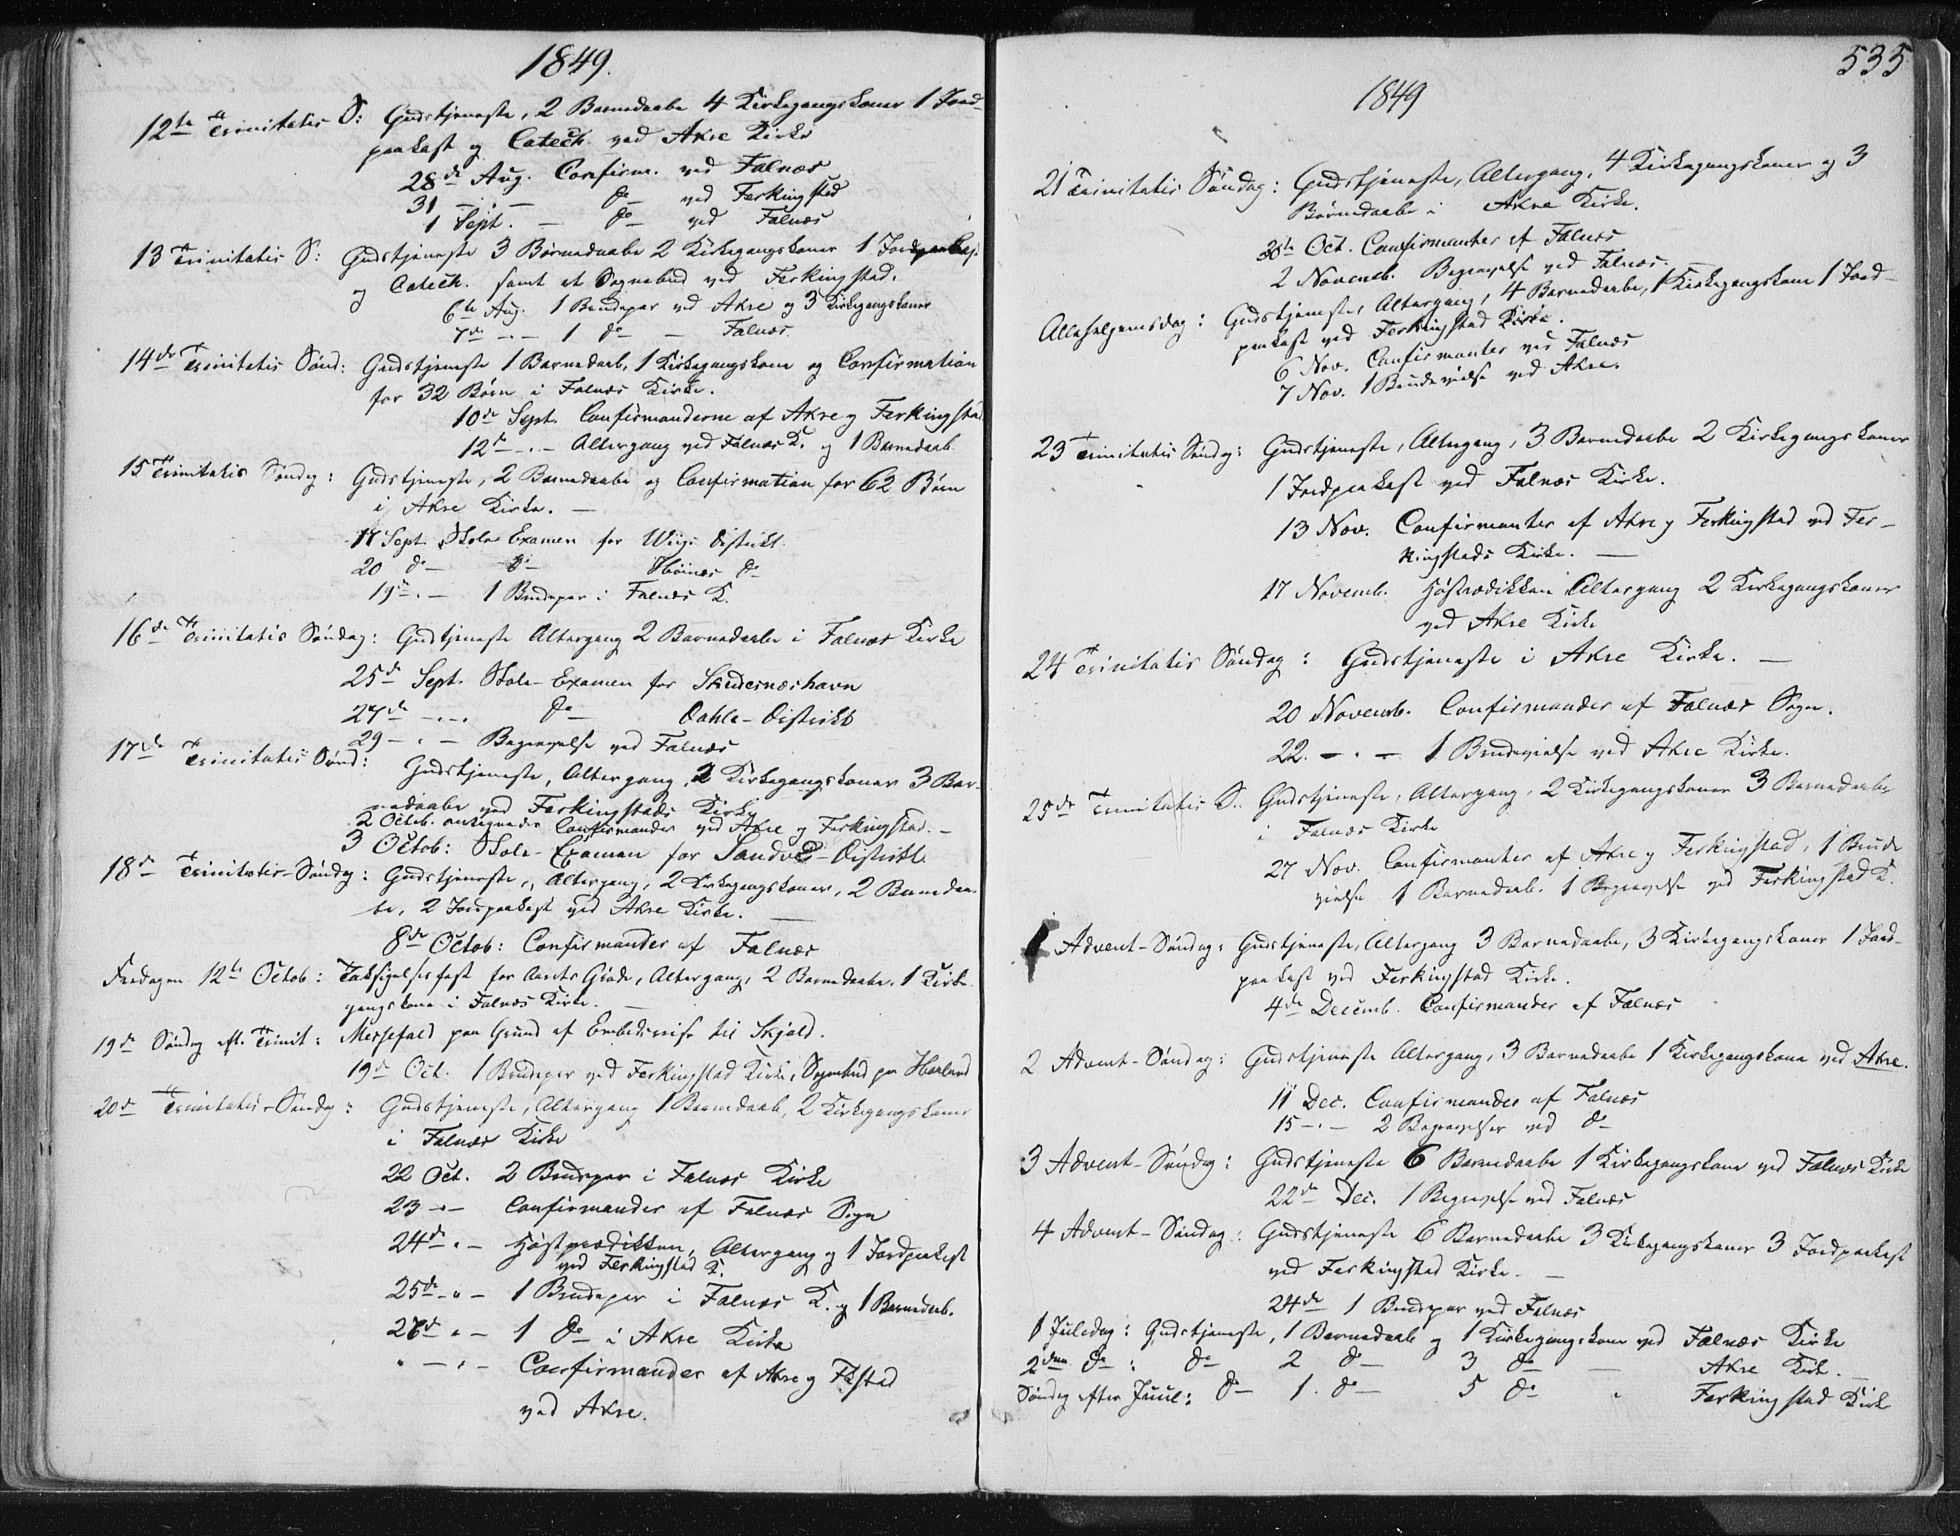 1849.
12te Trinitatis S: Gudstjeneste, 2 Barnedaabe 4 Kirkegangskoner 1 Jord-
paakast og Catech. ved Akre Kirke
28de Aug. Confirm. ved Falnæs
31 — " — do — ved Ferkingstad
1 Sept. — do — ved Falnæs
13 Trinitatis S: Gudstjeneste 3 Barnedaabe 2 Kirkegangskoner 1 Jordpaakast
og Catech. samt et Sognebud ved Ferkingstad.
6te Aug. 1 Brudepar ved Akre og 3 Kirkegangskoner
7de — " — 1 do — Falnæs
14de Trinitatis Sønd: Gudstjeneste 1 Barnedaab, 1 Kirkegangskone og Confirmation
for 32 Børn i Falnæs Kirke.
10de Sept. Confirmanderne af Akre og Ferkingstad
12te — " — Altergang ved Falnæs K. og 1 Barnedaab.
15 Trinitatis Søndag: Gudstjeneste, 2 Barnedaabe og Confirmation for 62 Børn
i Akre Kirke. —
Sept. Skole Examen for Wiigs District.
20 do — do — Høines do —
19de " — 1 Brudepar i Falnæs K.
16de Trinitatis Søndag: Gudstjeneste Altergang 2 Barnedaabe i Falnæs Kirke
25de Sept. Skole-Examen for Skudesnæshavn
27de — " — do — Dahle-District
29 — " — Begravelse ved Falnæs
17de Trinitatis Sønd: Gudstjeneste, Altergang, 2 Kirkegangskoner 3 Bar-
nedaabe ved Ferkingstads Kirke
2 Octob. Confirmander ved Akre og Ferkingstad. —
3 Octob: Skole-Examen for Sandve-District
18de Trinitatis-Søndag: Gudstjeneste, Altergang, 2 Kirkegangskoner, 2 Barnedaa-
be, 2 Jordpaakast ved Akre Kirke. —
8de Octob: Confirmander af Falnæs
Fredagen 12te Octob: Taksigelsesfest for Aarets Grøde, Altergang, 2 Barnedaabe, 1 Kirke-
gangskone i Falnæs Kirke. —
19de Søndag eft. Trinit: Messefald paa Grund af Embedsreise til Skjold.
19de Oct. 1 Brudepar ved Ferkingstad Kirke, Sognebud paa
20de Trinitatis-Søndag: Gudstjeneste, Altergang 1 Barnedaab, 2 Kirkegangskoner
i Falnæs Kirke
22 Oct. 2 Brudepar i Falnæs Kirke
23 — " — Confirmander af Falnæs Sogn
24de " — Høstprædikken, Altergang og 1 Jordpaakast
ved Ferkingstad K.
25de — " — 1 Brudepar i Falnæs K. og 1 Barnedaab.
de " — 1 do — i Akre Kirke
" — " — Confirmander af Akre og Fstad
ved Akre.
535
1849
21 Trinitatis Søndag: Gudstjeneste, Altergang, 4 Kirkegangskoner og 3
Barnedaabe i Akre Kirke.
30te Oct. Confirmanter af Falnæs
2 Novemb. Begravelse ved Falnæs. —
Allehelgensdag: Gudstjeneste, Altergang, 4 Barnedaabe, 1 Kirkegangskone 1 Jord-
paakast ved Ferkingstad Kirke.
6 Nov. Confirmanter ved Falnæs
7 Nov. 1 Brudevielse ved Akre.
23 Trinitatis Søndag: Gudstjeneste, Altergang, 3 Barnedaabe 2 Kirkegangskoner
1 Jordpaakast ved Falnæs Kirke.
13 Nov. Confirmanter af Akre og Ferkingstad ved Fer-
kingstads Kirke. —
17 Novemb. Høstprædikken Altergang 2 Kirkegangskoner
ved Akre Kirke
24 Trinitatis Søndag: Gudstjeneste i Akre Kirke. —
20 Novemb. Confirmander af Falnæs Sogn.
22. — " — 1 Brudevielse ved Akre Kirke.
25de Trinitatis S.. Gudstjeneste, Altergang, 2 Kirkegangskoner 3 Barnedaabe
i Falnæs Kirke
27 Nov. Confirmanter af Akre og Ferkingstad, 1 Brude
vielse 1 Barnedaab. 1 Begravelse ved Ferkingstad K.
1 Advent-Søndag: Gudstjeneste, Altergang 3 Barnedaabe, 3 Kirkegangskoner 1 Jord-
paakast ved Ferkingstad Kirke.
4de Decemb. Confirmander af Falnæs
2 Advent-Søndag: Gudstjeneste Altergang, 3 Barnedaabe 1 Kirkegangskone ved Akre.
11 Dec. Confirmander af Falnæs
15 — " — 2 Begravelser ved do —
3 Advent-Søndag: Gudstjeneste 6 Barnedaabe 1 Kirkegangskone ved Falnæs Kirke
22de Dec. 1 Begravelse ved Falnæs
4 Advent-Søndag: Gudstjeneste 6 Barnedaabe 3 Kirkegangskoner 3 Jordpaakast
ved Ferkingstad Kirke. —
24de 1 Brudepar ved Falnæs
1 Juledag: Gudstjeneste, 1 Barnedaab og 1 Kirkegangskone ved Falnæs Kirke
2den do : do 2 do — 3 do — Akre Kirke. —
Søndag efter Juul: do — 1. do — 5 do " Ferkingstad Kirke